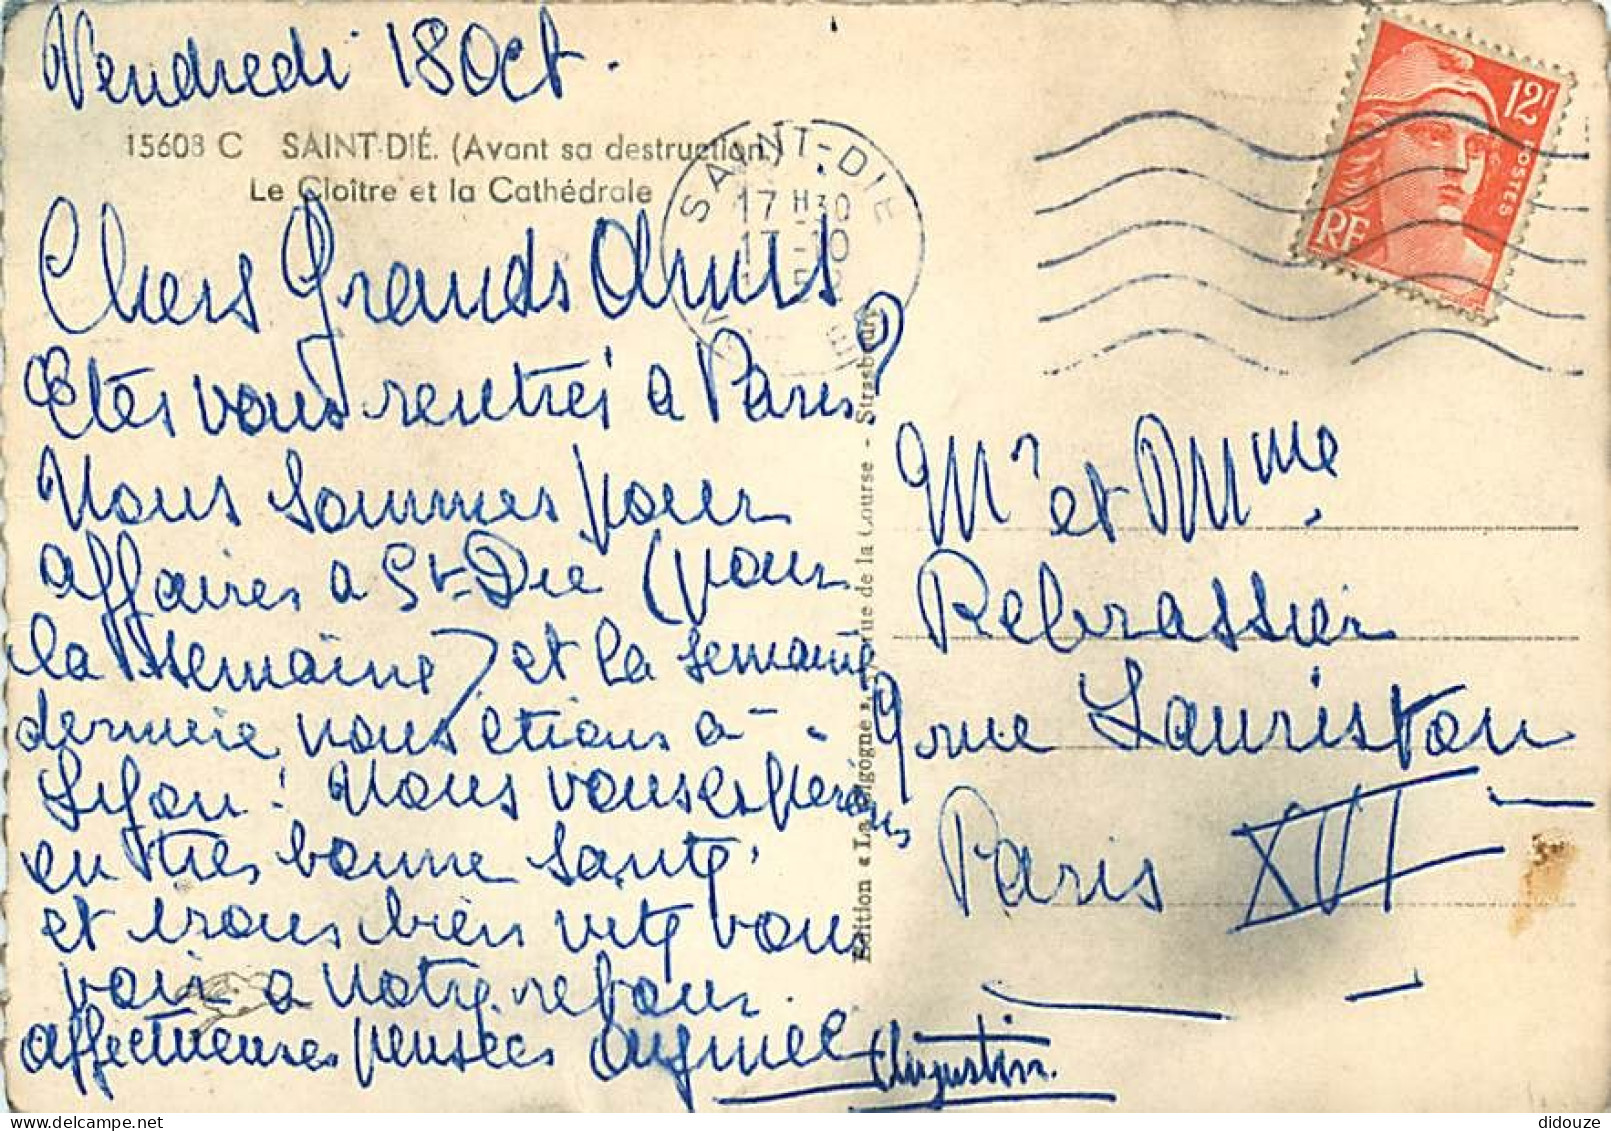 Vendredi 18 Oct.
15608 C SAINT-DIÉ. (Avant sa destruction.)
Le Cloître et la Cathédrale
SAINT-DIÉ
17 H30
17-10
12F
POSTES
RF
Chers Grands Amis,
Etes vous rentrés à Paris?
Nous sommes pour
affaires a St-Dié (pour
la semaine) et la semaine
dernière nous etions a -
Lyon! Nous vous espérons
en très bonne santé,
et irons bien vite vous
voir a notre retour.
affectueuses pensées
Augustin.
Edition « La Cigogne », rue de la Course - Strasbourg
Mr et Mme
Rebrassier
9 rue Lauriston
Paris XVI
didouze